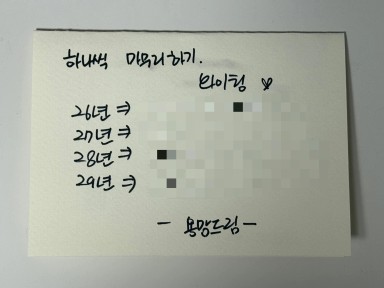 하나씩 마무리하기.
화이팅 ♡
26년 ⇒
27년 ⇒
28년 ⇒
29년 ⇒
- 용망드림 -